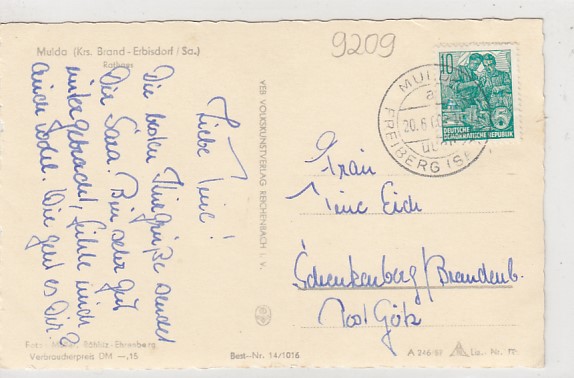 Mulda (Krs. Brand-Erbisdorf/Sa.)
Rathaus
9209
Liebe Tine!
Die besten Kurgrüße sendet
Dir Sara. Bin sehr gut
untergebracht, fühle mich
auch wohl. Wie geht es Dir?
VEB VOLKSKUNSTVERLAG REICHENBACH i. V.
10
DEUTSCHE
DEMOKRATISCHE REPUBLIK
MULDA
a
20.6.60
FREIBERG (S
Frau
Tine Eich
Schenkenberg/Brandenb.
Post Götz
Foto: Röhlitz-Ehrenberg
Verbraucherpreis DM —,15
Best-Nr. 14/1016
A 246/57